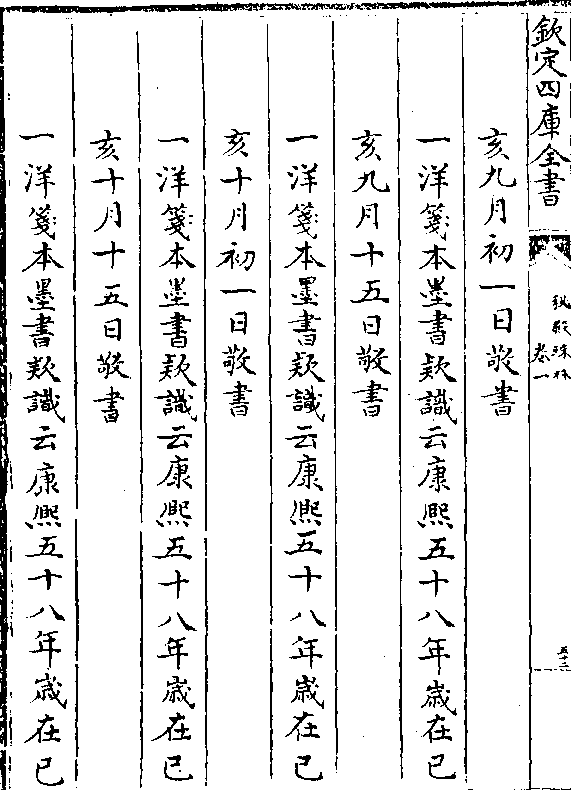 欽定四庫全書
秘殿珠林
卷一
五十二
亥九月初一日敬書
一洋箋本墨書欵識云康熙五十八年歲在己
亥九月十五日敬書
一洋箋本墨書欵識云康熙五十八年歲在己
亥十月初一日敬書
一洋箋本墨書欵識云康熙五十八年歲在己
亥十月十五日敬書
一洋箋本墨書欵識云康熙五十八年歲在己